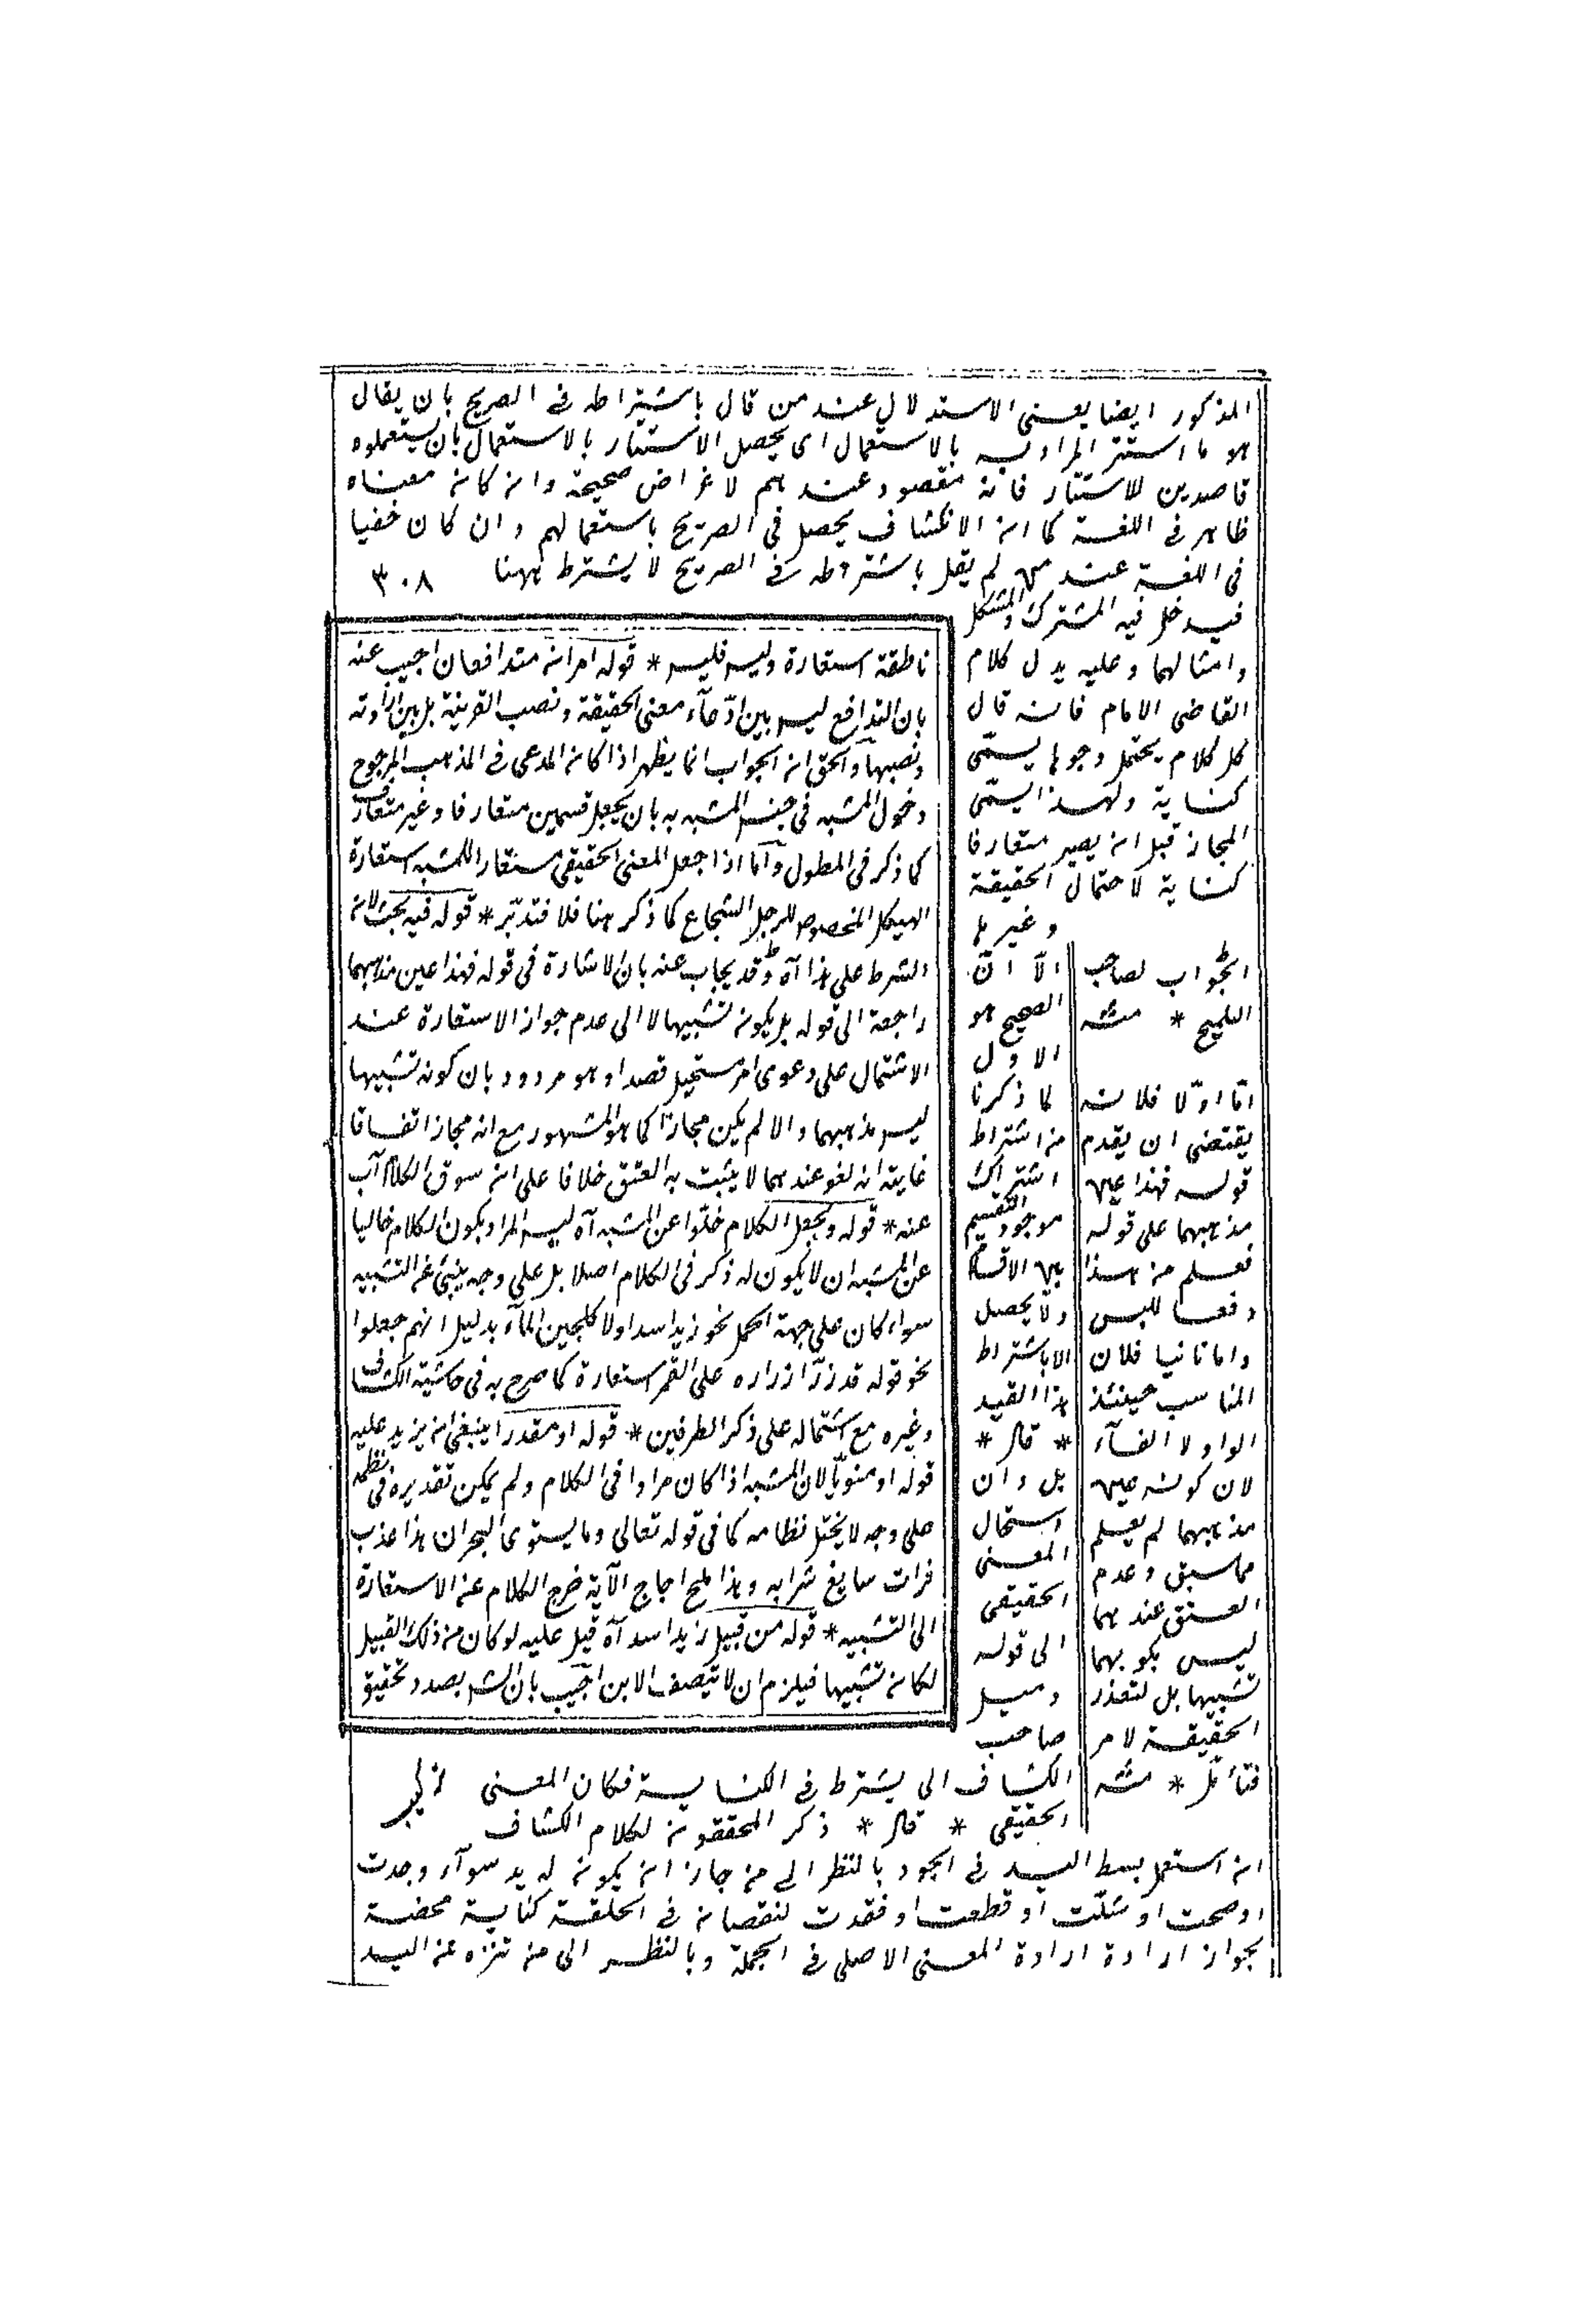 المذكور ايضا يعنى الاستدلال عند من قال باشتراطه فى الصريح بان يقال
هو ما استتر المراد به بالاستعمال اى يحصل الاستتار بالاستعمال بان يستعملوه
قاصدين للاستتار فانه مقصود عندهم لاغراض صحيحة وان كان معناه
ظاهر فى اللغة كما ان الانكشاف يحصل فى الصريح باستعمالهم وان كان خفيا
فى اللغة عند من لم يقل باشتراطه فى الصريح لا يشترط ههنا
٣٠٨
فيدخل فيه المشترك والمشكل
وامثالهما وعليه يدل كلام
القاضى الامام فانه قال
كل كلام يحتمل وجوها يسمّى
كناية ولهذا يسمّى
المجاز قبل ان يصير متعارفا
كناية لاحتمال الحقيقة
وغيرها
الّا انّ
الصحيح هو
الاول
لما ذكرنا
من اشتراط
اشتراك
التقسيم
موجود
بين الاقسام
ولا يحصل
الا باشتراط
هذا القيد
* قال *
بل وان
استحال
المعنى
الحقيقى
الى قوله
وميل
صاحب
الكشاف الى يشترط فى الكناية فكان المعنى
الحقيقى * قال * ذكر المحققون لكلام الكشاف
ان استعمل بسط اليد فى الجود بالنظر الى من جاز ان يكون له يد سوآء وجدت
او صحت او شلّت او قطعت او فقدت لنقصان فى الخلقة كناية محضة
بجواز ارادة ارادة المعنى الاصلى فى الجملة وبالنظر الى من تنزه عن اليد
الجواب لصاحب
التلميح * منه
امّا اوّلا فلانه
يقتضى ان يقدم
قوله فهذا عين
مذهبهما على قوله
فعلم من هذا
دفعا للبس
واما ثانيا فلان
المناسب حينئذ
الواو لا الفآء
لان كونه عين
مذهبهما لم يعلم
مما سبق وعدم
العتق عندهما
ليس بكونهما
تشبيها بل لتعذر
الحقيقة لامر
فتأمّل * منه
ناطقة استعارة وليس فليس * قوله امران متدافعان اجيب عنه
بان التدافع ليس بين ادّعآء معنى الحقيقة ونصب القرينة بل بين ارادته
ونصبها والحق ان الجواب انما يظهر اذا كان المدعى فى المذهب المرجوح
دخول المشبه فى جنس المشبه به بان يجعل قسمين متعارفا وغير متعارف
كما ذكر فى المطول وامّا اذا جعل المعنى الحقيقى مستعارا للمشبه استعارة
الهيكل المخصوص للرجل الشجاع كما ذكر هنا فلا فتدبّر * قوله فيه بحث لان
الشرط على هذا آه وقد يجاب عنه بان الاشارة فى قوله فهذا عين مذهبهما
راجعة الى قوله بل يكون تشبيها لا الى عدم جواز الاستعارة عند
الاشتمال على دعوى امر مستحيل قصدا وهو مردود بان كونه تشبيها
ليس مذهبهما والا لم يكن مجازا كما هو المشهور مع انه مجاز اتفاقا
غايته انه لغو عندهما لا يثبت به العتق خلافا على ان سوق الكلام آب
عنه * قوله ويجعل الكلام خلوّا عن المشبه آه ليس المراد بكون الكلام خاليا
عن المشبه ان لا يكون له ذكر فى الكلام اصلا بل على وجه ينبئ عن التشبيه
سواء كان على جهة الحمل نحو زيد اسد او لا كلجين المآء بدليل انهم جعلوا
نحو قوله قد زرّ ازراره على القمر استعارة كما صرح به فى حاشية الكشاف
وغيره مع اشتماله على ذكر الطرفين * قوله او مقدرا ينبغى ان يزيد عليه
قوله او منويّا لان المشبه اذا كان مرادا فى الكلام ولم يمكن تقديره فى نظمه
على وجه لا يختل نظامه كما فى قوله تعالى وما يستوى البحران هذا عذب
فرات سايغ شرابه وهذا ملح اجاج الآية خرج الكلام عن الاستعارة
الى التشبيه * قوله من قبيل زيد اسد آه قيل عليه لو كان من ذلك القبيل
لكان تشبيها فيلزم ان لا يتصف الابن اجيب بان الش بصدد تحقيق